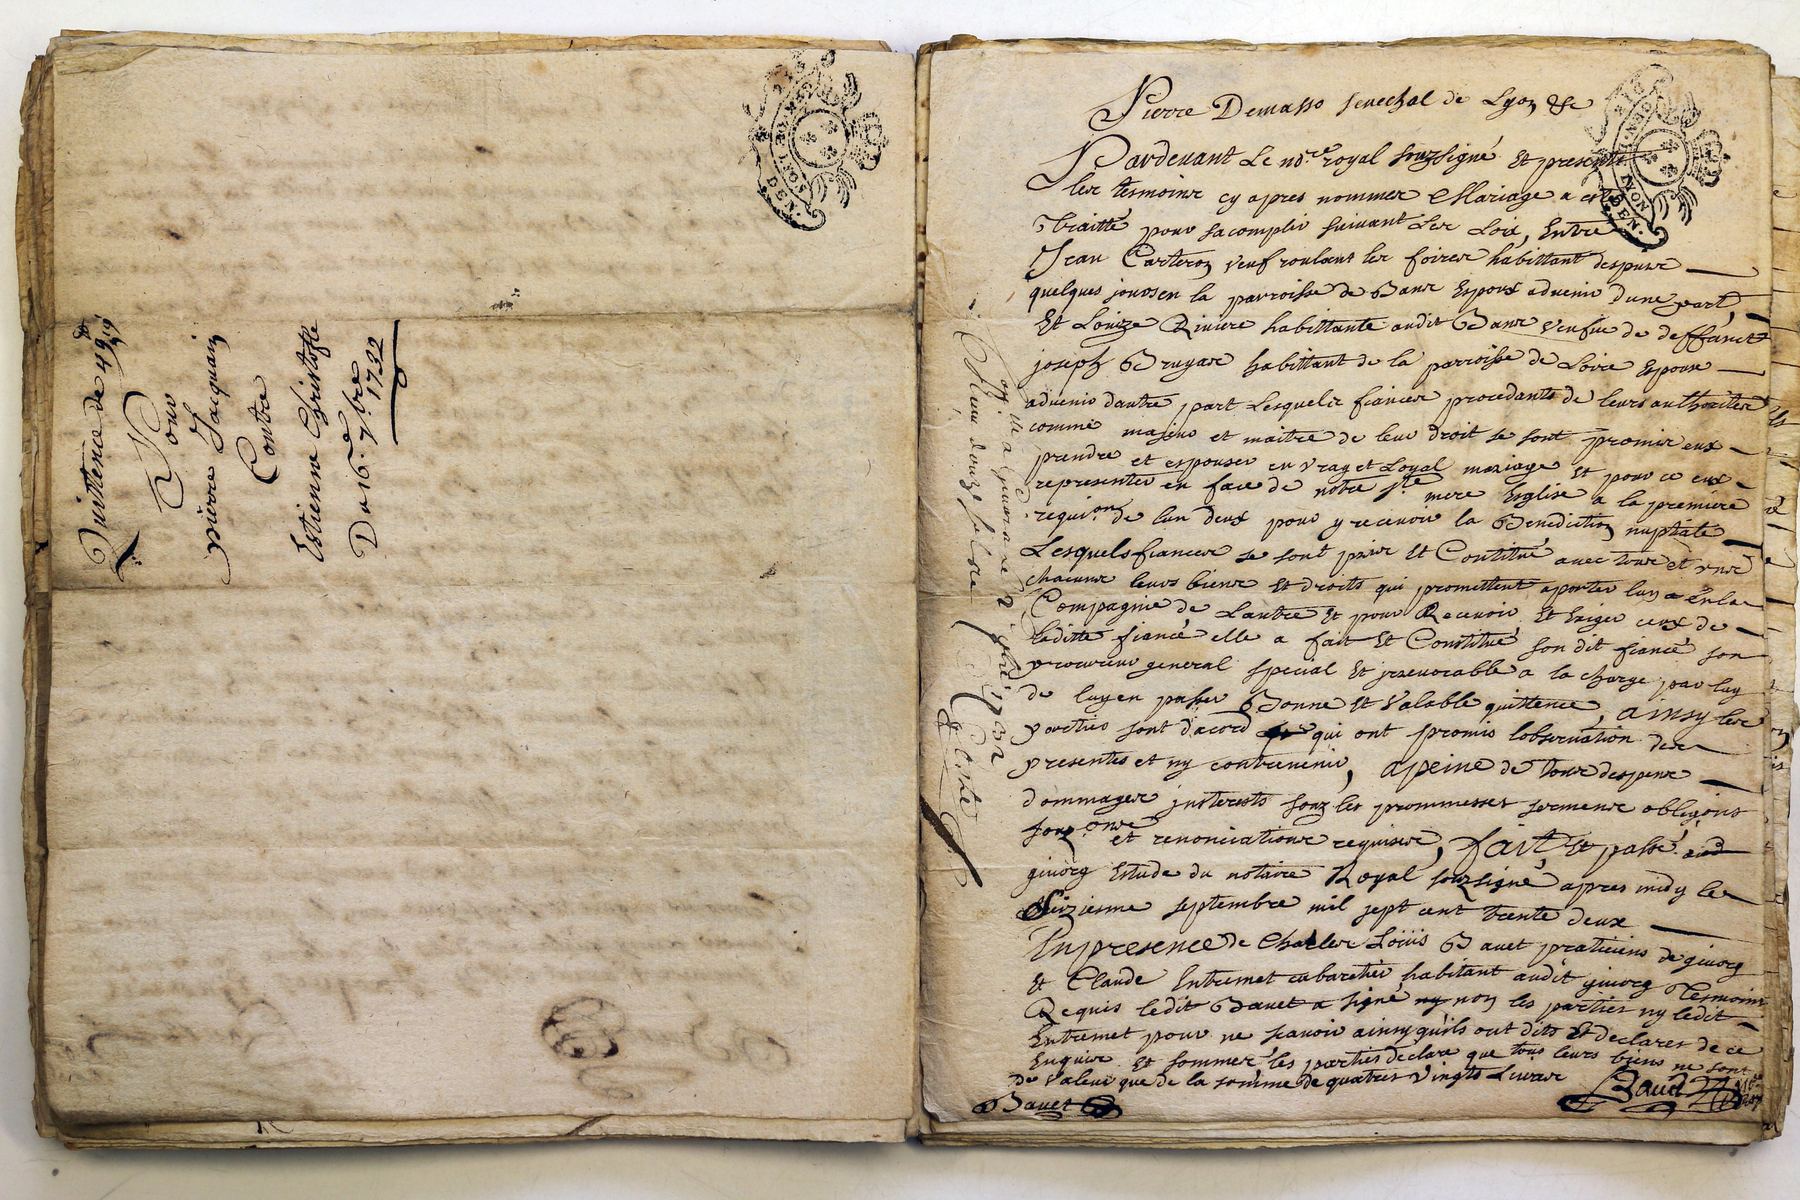 Quittence de 49lt 19s
Pour
pierre Jacquain
Contre
Estienne Christofle
Du 16e 7bre 1732
GEN. DE LYON
DEN.
Pierre Demasso senechal de Lyon &c
Pardevant Le nore royal souzsigné Et presents
les tesmoins cy apres nommes Mariage a esté
Traitté pour sacomplir suivant Les Loix, Entre
Jean Carteron veuf roulant les foires habittant despuis
quelques jours en la parroisse de Bans Espoux advenir dune part,
Et Louize Riviere habittante audit Bans veufve de deffunct
joseph Bruyas habittant de la parroisse de Loire Espouse
advenir dautre part Lesquels fiances procedants de leurs authorites
comme majeur et maitre de leur droit se sont promis eux
prendre et espouser en vray et Loyal mariage Et pour ce eux
representer en face de notre ste mere Esglise a la premiere
requion de lun deux pour y recevoir la Benediction nuptiale
Lesquels fiances se sont pris Et Constitué avec tous et uns
chacuns leurs biens Et droits qui promettent aporter luy a en la
Compagnie de Lautre Et pour Recevoir Et Exiger ceux de
laditte fiancé elle a fait Et Constitué son dit fiancé son
procureur general special Et jrrevocable a la charge par luy
de luy en passer Bonne Et Valable quittence, ainsy les
parties sont dacord qui ont promis lobservation des
presentes et ny contrevenir, apeine de tous despens
dommages justerests souz les prommesses sermens obligons
souz.ons et renonciations requises, fait Et passé aud
givorg Estude du notaire Royal souzsigné apres midy le
Seiziesme septembre mil sept cent trente deux
En presence de Charles Loüis Bavet praticiens de givorg
Et Claude Entremet cabaretier habitant audit givorg Tesmoins
Requis ledit Bavet a signé ny non les parties ny ledit
Entremet pour ne scavoir ainsy quils ont dits Et declares de ce
Enquis Et sommes les parties declare que tous leurs biens ne sont
de valeur que de la somme de quatres vingts Livres
Bavet
Baud
Reçu douze sols